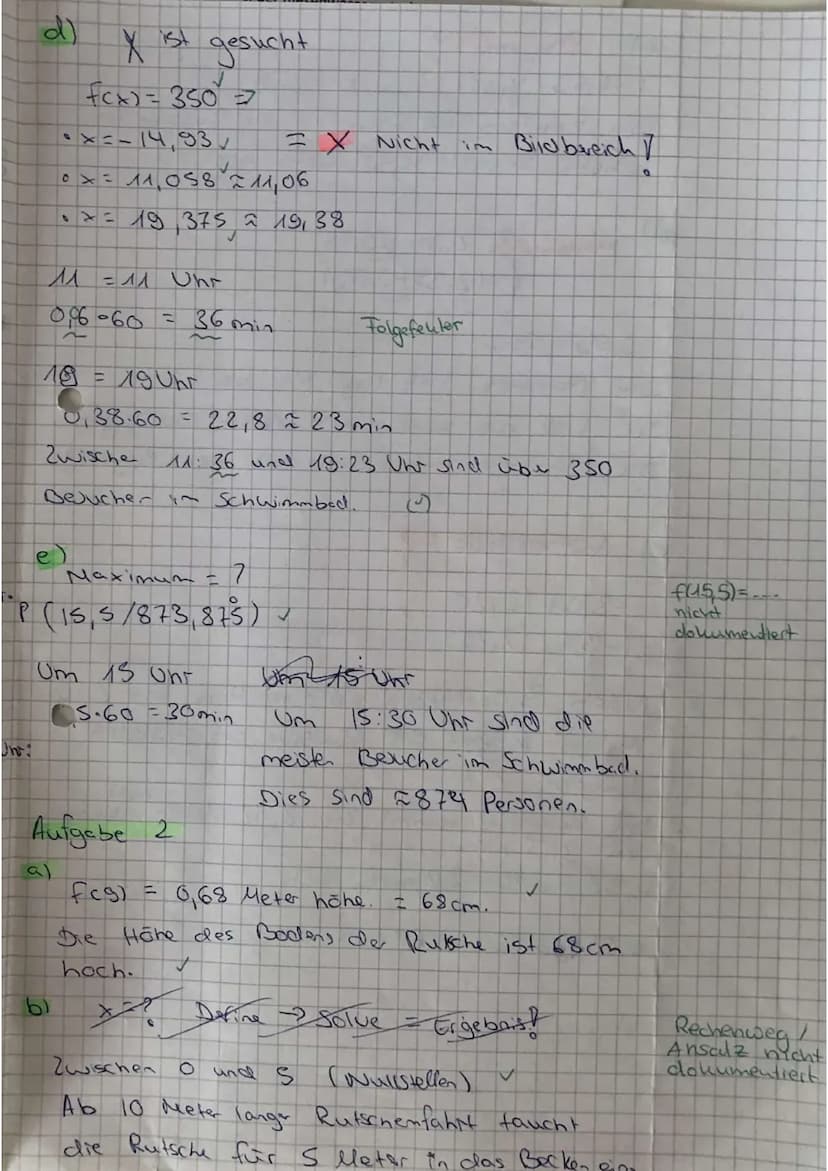 d) X ist gesucht
f(x) = 350 ✓ =>
• x = -14,93 ✓ = X Nicht im Bildbereich!
• x = 11,058 ✓ ≈ 11,06
• x = 19,375 ✓ ≈ 19,38
11 = 11 Uhr
0,06 • 60 = 36 min Folgefehler
19 = 19 Uhr
0,38 • 60 = 22,8 ≈ 23 min
Zwischen 11:36 und 19:23 Uhr sind über 350
Besucher im Schwimmbad. (✓)
e)
Maximum = ?
P (15,5/873,875) ✓
f(15,5) = ....
nicht
dokumentiert
Um 15 Uhr Um 15 Uhr
5•60 = 30 min Um 15:30 Uhr sind die
Uhr:
meisten Besucher im Schwimmbad.
Dies sind ≈ 874 Personen.
Aufgabe 2
a)
f(9) = 0,68 Meter höhe. = 68 cm. ✓
Die Höhe des Bodens der Rutsche ist 68 cm
hoch. ✓
b) x = ? Define -> Solve = Ergebnis!
Rechenweg/
Ansatz nicht
dokumentiert
Zwischen 0 und 5 (Nullstellen) ✓
Ab 10 Meter langer Rutschenfahrt taucht
die Rutsche für 5 Meter in das Becken ein.